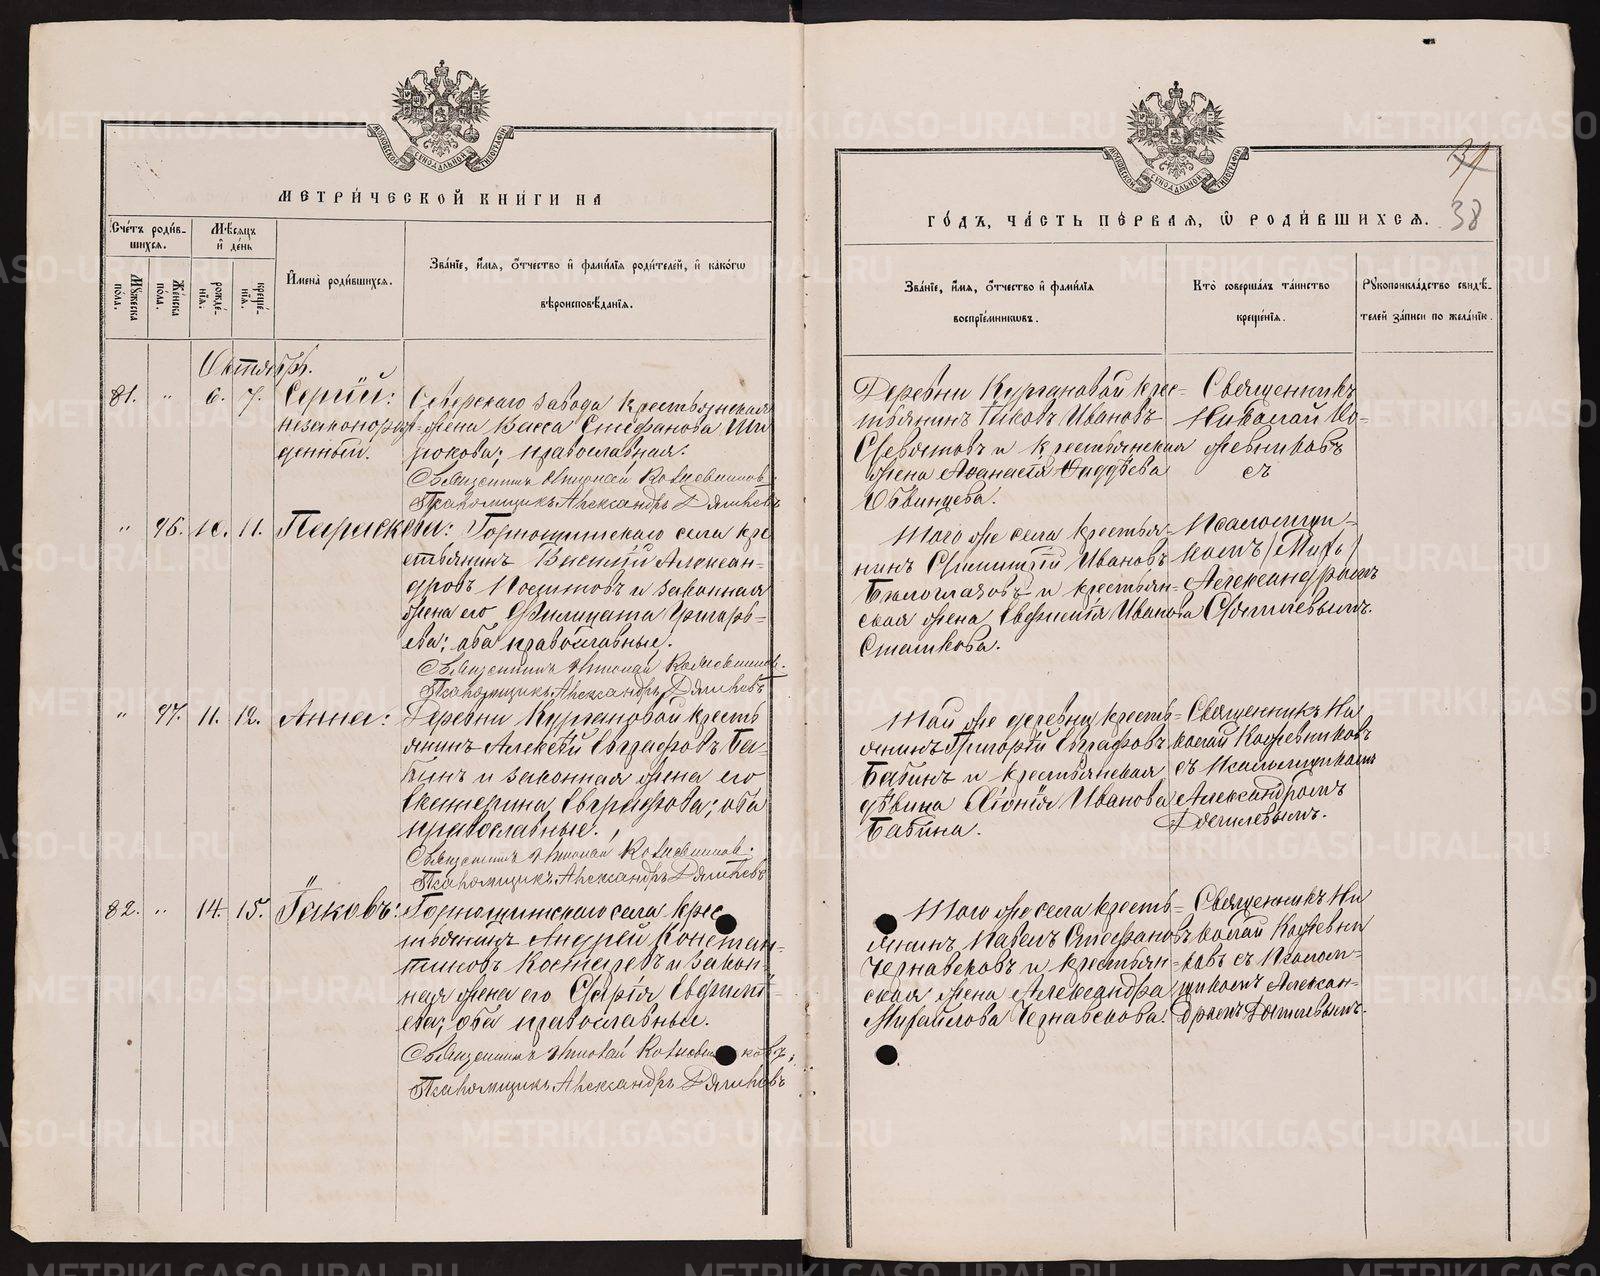 МЕТРИ́ЧЕСКОЙ КНИ́ГИ НА
Сче́тъ роди́в-
шихся.
Мѣ́сяцъ
и҆ де́нь
Мꙋ́жеска
по́ла.
Же́нска
по́ла.
рожде́-
нїѧ.
креще́-
нїѧ.
И҆мена̀ роди́вшихсѧ.
Зва́нїе, и҆́мѧ, ѻ҆́тчество и҆ фами́лїѧ роди́телей, и҆ како́гѡ
вѣроисповѣ́данїѧ.
Октябрь.
81. " 6. 7. Сергій:
незаконорож-
денный.
Сѣверскаго завода крестьянская
жена Васса Стефанова Ши
рокова; православная.
Священникъ Николай Кожевниковъ.
Псаломщикъ Александръ Дягилевъ
" 96. 10. 11. Параскева:
Горнощитскаго села кре
стьянинъ Василій Алексан-
дровъ и законная
жена его Филицата Григорь-
ева; оба православные.
Священникъ Николай Кожевниковъ.
Псаломщикъ Александръ Дягилевъ
" 97. 11. 12. Анна:
Деревни Кургановой кресть
янинъ Алексѣй Евграфовъ Ба-
бинъ и законная жена его
Екатерина Евграфова; оба
православные.
Священникъ Николай Кожевниковъ.
Псаломщикъ Александръ Дягилевъ
82. " 14. 15. Іаковъ:
Горнощитскаго села крес
тьянинъ Андрей Констан-
тиновъ Костаревъ и закон-
ная жена его Марія Евфимі-
ева; оба православные.
Священникъ Николай Кожевниковъ;
Псаломщикъ Александръ Дягилевъ
ГО́ДЪ, ЧА́СТЬ ПЕ́РВАЯ, Ѡ҆ РОДИ́ВШИХСѦ.
37
38
Зва́нїе, и҆́мѧ, ѻ҆́тчество и҆ фами́лїѧ
воспрїе́мникѡвъ.
Кто̀ соверша́лъ та́инство
креще́нїѧ.
Рꙋкоприкла́дство свидѣ́-
телей за́писи по жела́нїю.
Деревни Кургановой крес-
тьянинъ Іаковъ Ивановъ
и крестьянская
жена Аѳанасія Фаддѣева
Обвинцева.
Священникъ
Николай Ко-
жевниковъ
съ
Того же села крестья-
нинъ Димитрій Ивановъ
Бѣлоглазовъ и крестьян-
ская жена Евфимія Иванова
Статкова.
Псаломщи-
комъ
Александромъ
Дягилевымъ.
Той же деревни кресть-
янинъ Григорій Евграфовъ
Бабинъ и крестьянская
дѣвица Хіонія Иванова
Бабина.
Священникъ Ни
колай Кожевниковъ
съ Псаломщикомъ
Александромъ
Дягилевымъ.
Того же села кресть-
янинъ Павелъ Стефановъ
Чернавсковъ и крестьян-
ская жена Александра
Михайлова Чернавскова.
Священникъ Ни
колай Кожевни
ковъ съ Псалом-
щикомъ Алексан-
дромъ Дягилевымъ.